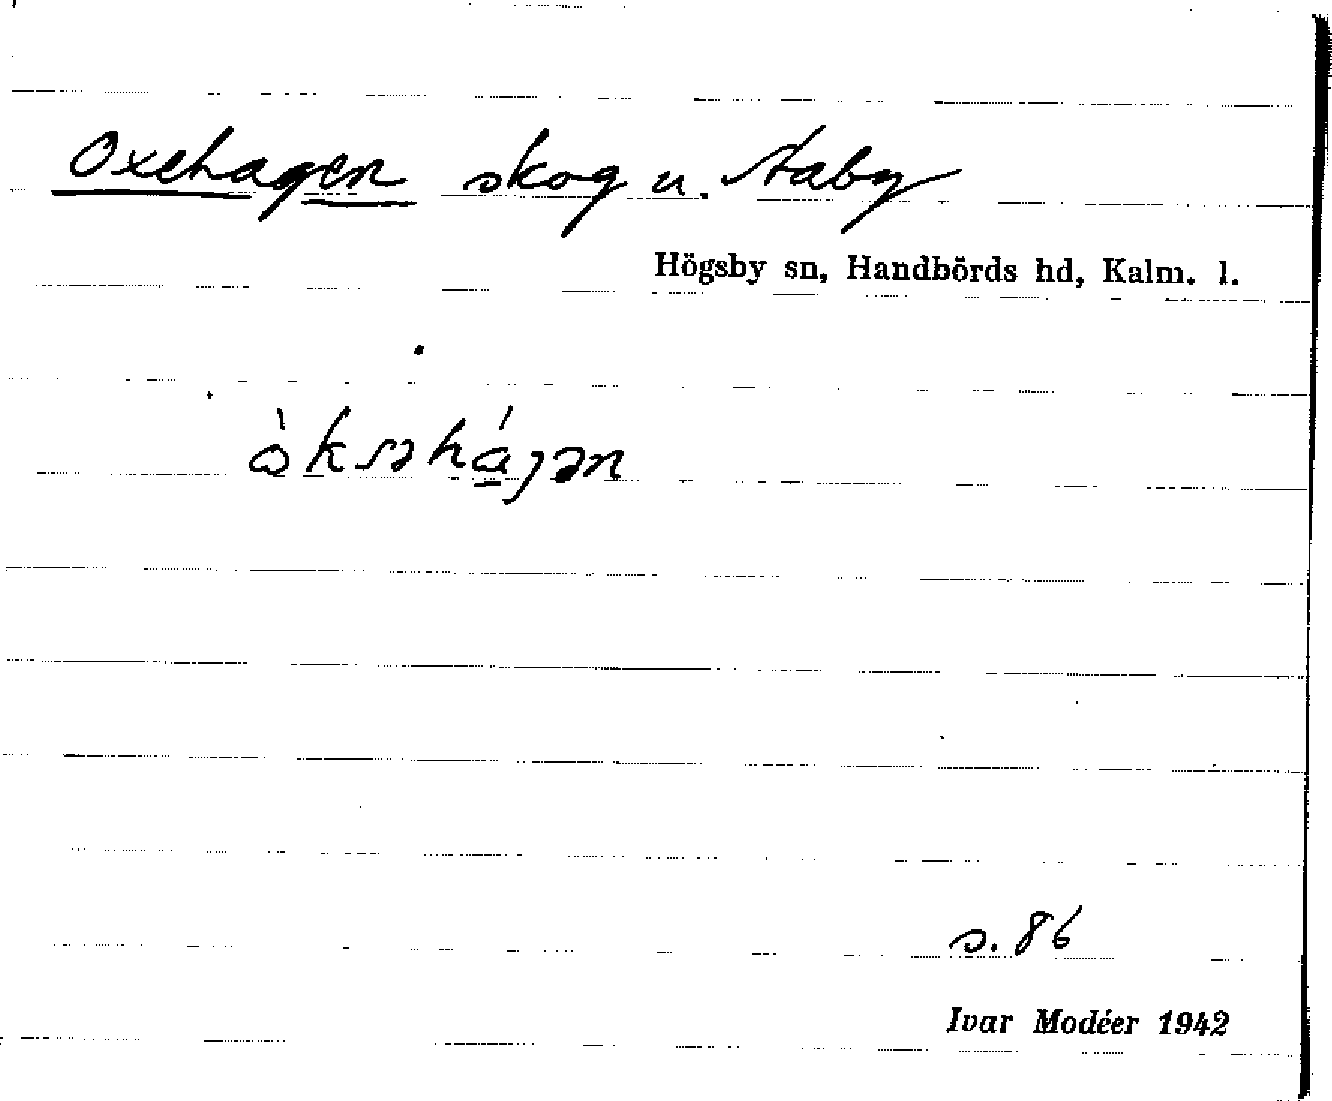 Oxehagen skog u. Staby
Högsby sn, Handbörds hd, Kalm. l.
òksəhágən
s. 86
Ivar Modéer 1942